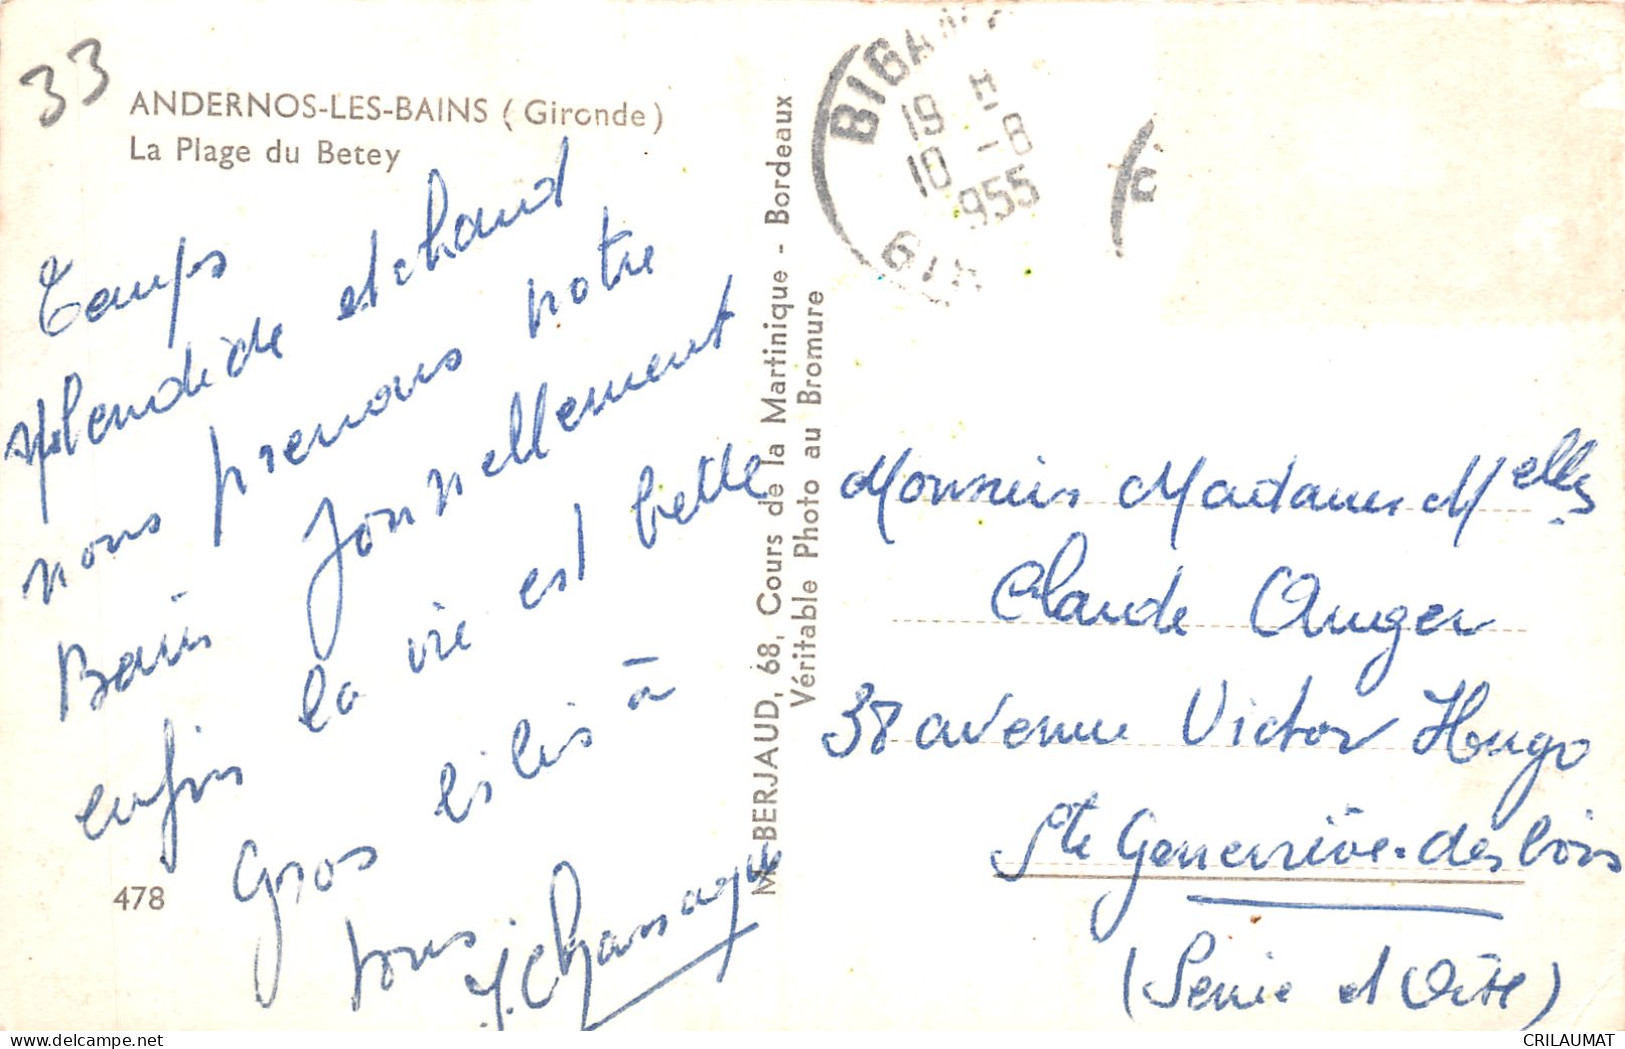 33
ANDERNOS-LES-BAINS (Gironde)
La Plage du Betey
Temps
splendide et chaud
nous prenons notre
Bain Jonnellement
enfin la vie est belle
Gros à
tous.
478
M. BERJAUD, 68, Cours de la Martinique - Bordeaux
Véritable Photo au Bromure
BIGAN
19 H
10 -8
955
GIR
Monsieur Madame Melles
Claude Auger
38 avenue Victor Hugo
Ste Geneviève-des bois
(Seine et Oise)
CRILAUMAT